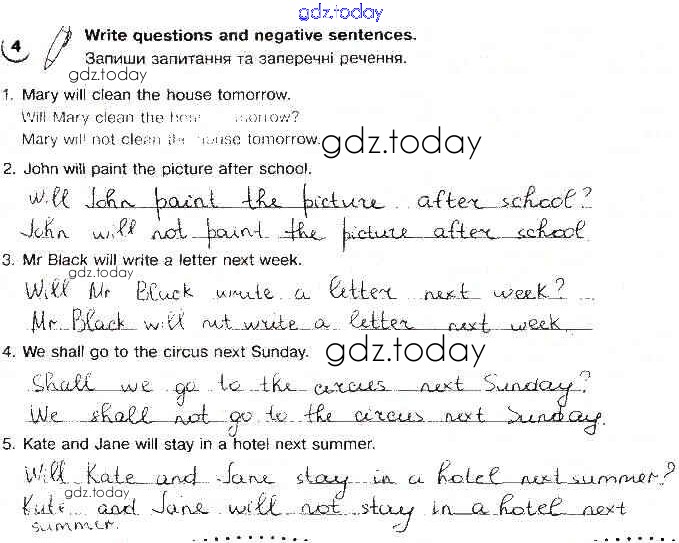 gdz.today
4 Write questions and negative sentences.
Запиши запитання та заперечні речення.
gdz.today
1. Mary will clean the house tomorrow.
Will Mary clean the
Mary will not clean the house tomorrow.
gdz.today
2. John will paint the picture after school.
Will John paint the picture after school?
John will not paint the picture after school
3. Mr Black will write a letter next week.
gdz.today
Will Mr Black write a letter next week?
Mr. Black will not write a letter next week
4. We shall go to the circus next Sunday.
gdz.today
Shall we go to the circus next Sunday?
We shall not go to the circus next Sunday.
5. Kate and Jane will stay in a hotel next summer.
Will Kate and Jane stay in a hotel next summer?
gdz.today
Kate and Jane will not stay in a hotel next
summer.